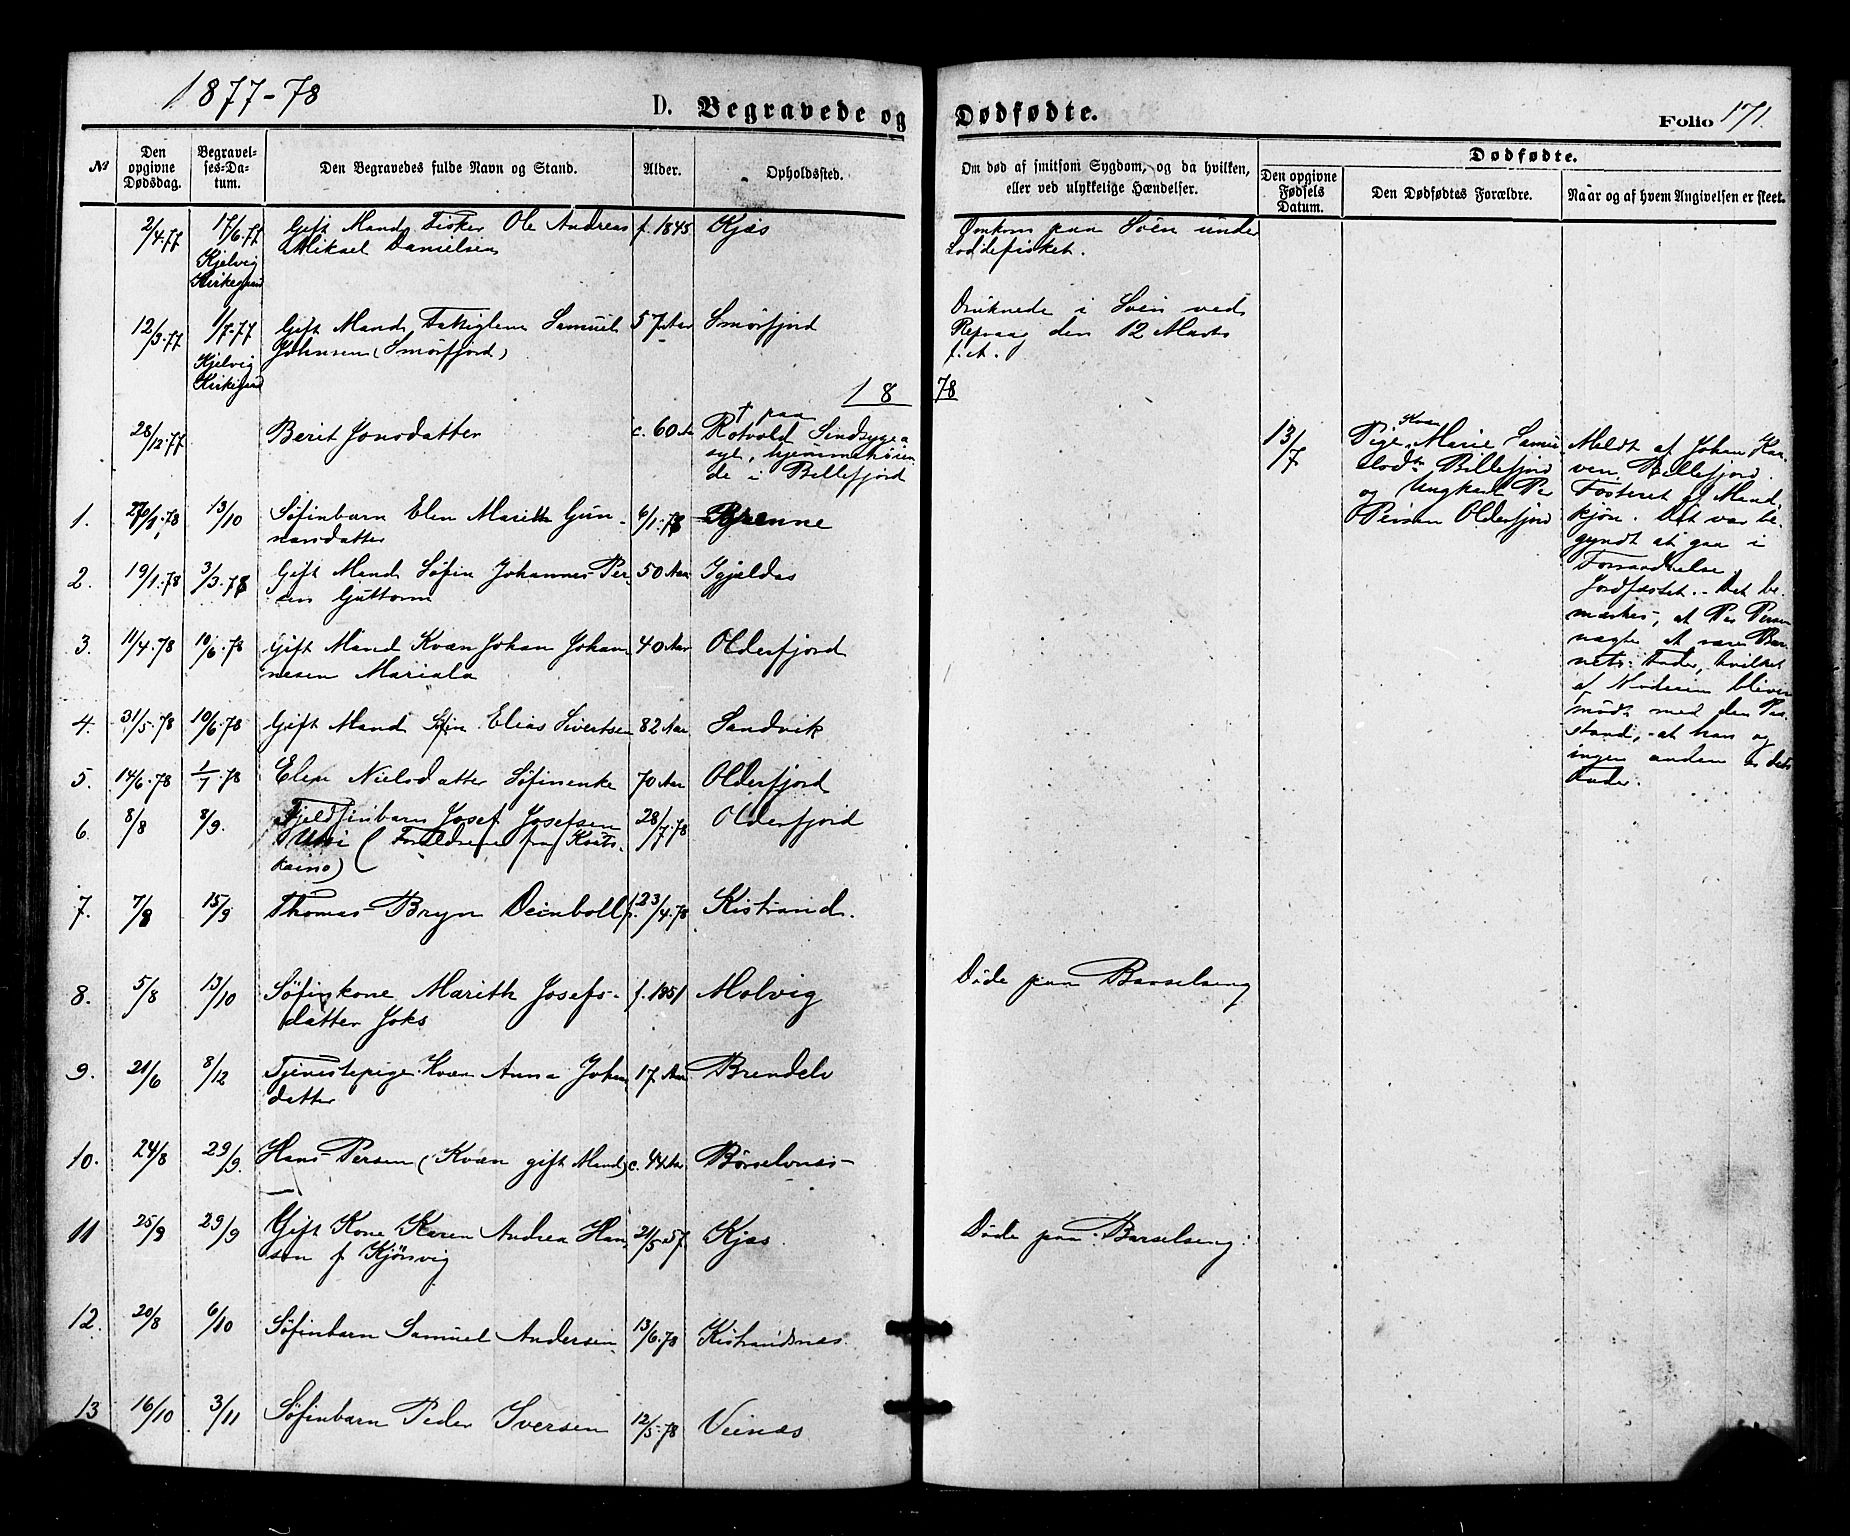 1877-78
D. Begravede og Dødfødte.
Folio 171.
№ Den opgivne Dødsdag. Begravelses-Datum. Den Begravedes fulde Navn og Stand. Alder. Opholdssted. Om død af smitsom Sygdom, og da hvilken, eller ved ulykkelige Hændelser. Dødfødte. Den opgivne Fødsels Datum. Den Dødfødtes Forældre. Naar og af hvem Angivelsen er skeet.
2/4.77 17/6.77 Gift Mand, Fisker Ole Andreas f. 1845 Kjæs Omkom paa Söen under
Kjelvig Mikael Danielsen Loddefisket.
Kirkegaard
12/3.77 1/7.77 Gift Mand, Fattiglem Samuel 57 Aar Smörfjord Druknede i Söen ved
Kjelvig Johnsen (Smörfjord) Repvaag den 12 Marts
Kirkegaard f. A.
18 78
28/12.77 Berit Jonsdatter c. 60 Aar † paa
Rotvold Sindssygea
syl, hjemmehören
de i Billefjord
13/7 Pige Kvæn Marie Samu
elsdtr Billefjord
og Ungkarl Per
Persen Olderfjord
Meldt af Johan Kar
ven, Billefjord.
Fosteret af Mand
kjön. Det var be
gyndt at gaa i
Forraadnelse.
Jordfæstet. - Det be
mærkes, at Per Persen
nægter at være Bar
nets Fader, hvilket
af Moderen bliver
mödt med den Paa
stand, at han og
ingen anden er dets
Fader.
1. 20/1.78 13/10 Søfinbarn Elen Marith Gun-
narsdatter 6/1.78 Brenne
2. 19/1.78 3/3.78 Gift Mand Søfin Johannes Per
sen Guttorm 50 Aar Igjeldas
3. 11/4.78 10/6.78 Gift Mand Kvæn Johan Johan
nesen Mariala 40 Aar Olderfjord
4. 31/5.78 10/6.78 Gift Mand Søfin Elias Sivertsen 82 Aar Sandvik
5. 14/6.78 1/7.78 Elen Nielsdatter Søfinenke 70 Aar Olderfjord
6. 8/8 8/9. Fjeldfinbarn Josef Josefsen
Utsi (Forældrene fra Kouto-
kæino) 28/7.78 Olderfjord
7. 7/8 15/9 Thomas Bryn Deinboll f. 23/4.78 Kistrand.
8. 5/8 13/10 Søfinkone Marith Josefs-
datter Joks f. 1851 Molvig Döde paa Barselseng
9. 21/6 8/12 Tjenestepige Kvæn Anna Johan
datter 17 Aar Brendelv
10. 24/8 29/9. Hans Persen (Kvæn gift Mand) c. 44 Aar Börselvnæs
11 25/8 29/9 Gift Kone Karen Andrea Han
sen f. Kjönsvig 21/5.57. Kjæs. Döde paa Barselseng.
12. 20/8 6/10 Søfinbarn Samuel Andersen 13/6.78 Kistrandsnæs.
13 16/10 3/11 Søfinbarn Peder Iversen 12/5.78 Veinæs